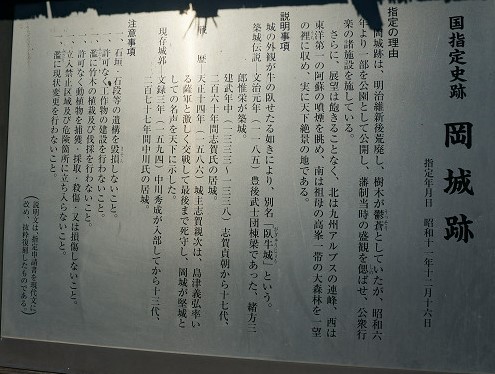 国指定史跡 岡城跡
指定年月日 昭和十一年十二月十六日
指定の理由
岡城跡は、明治維新後荒廃し、樹木が鬱蒼としていたが、昭和六
年より一部を公園として公開し、藩制当時の盛観を偲ばせ、公衆行
楽の諸施設を施している。
さらに、展望は飽きることなく、北は九州アルプスの連峰、西は
東洋第一の阿蘇の噴煙を眺め、南は祖母の高峯一帯の大森林を一望
の裡に収め、実に天下絶景の地である。
説明事項
城の外観が牛の臥せたる如きにより、別名「臥牛城」という。
築城伝説 文治元年（一一八五）豊後武士団棟梁であった、緒方三
郎惟栄が築城。
建武年中（一三三三～一三三八）志賀貞朝から十七代、
二百六十年間志賀氏の居城。
歴 天正十四年（一五八六）城主志賀親次は、島津義弘率い
る薩軍と激しく交戦して最後まで死守し、岡城が堅城と
しての名声を天下に示した。
現存城郭 文録三年（一五九四）中川秀成が入部してから十三代、
二百七十七年間中川氏の居城。
注意事項
一、石垣、石段等の遺構を毀損しないこと。
一、許可なく工作物の建設を行わないこと。
一、濫に竹木の植栽及び伐採を行わないこと。
一、許可なく動植物を捕獲、採取、殺傷、又は損傷しないこと。
一、立入禁止区域及び危険箇所に立ち入らないこと。
一、濫に現状変更を行わないこと。
（説明文は、指定申請書を現代文に
改め、抜粋復刻したものである）